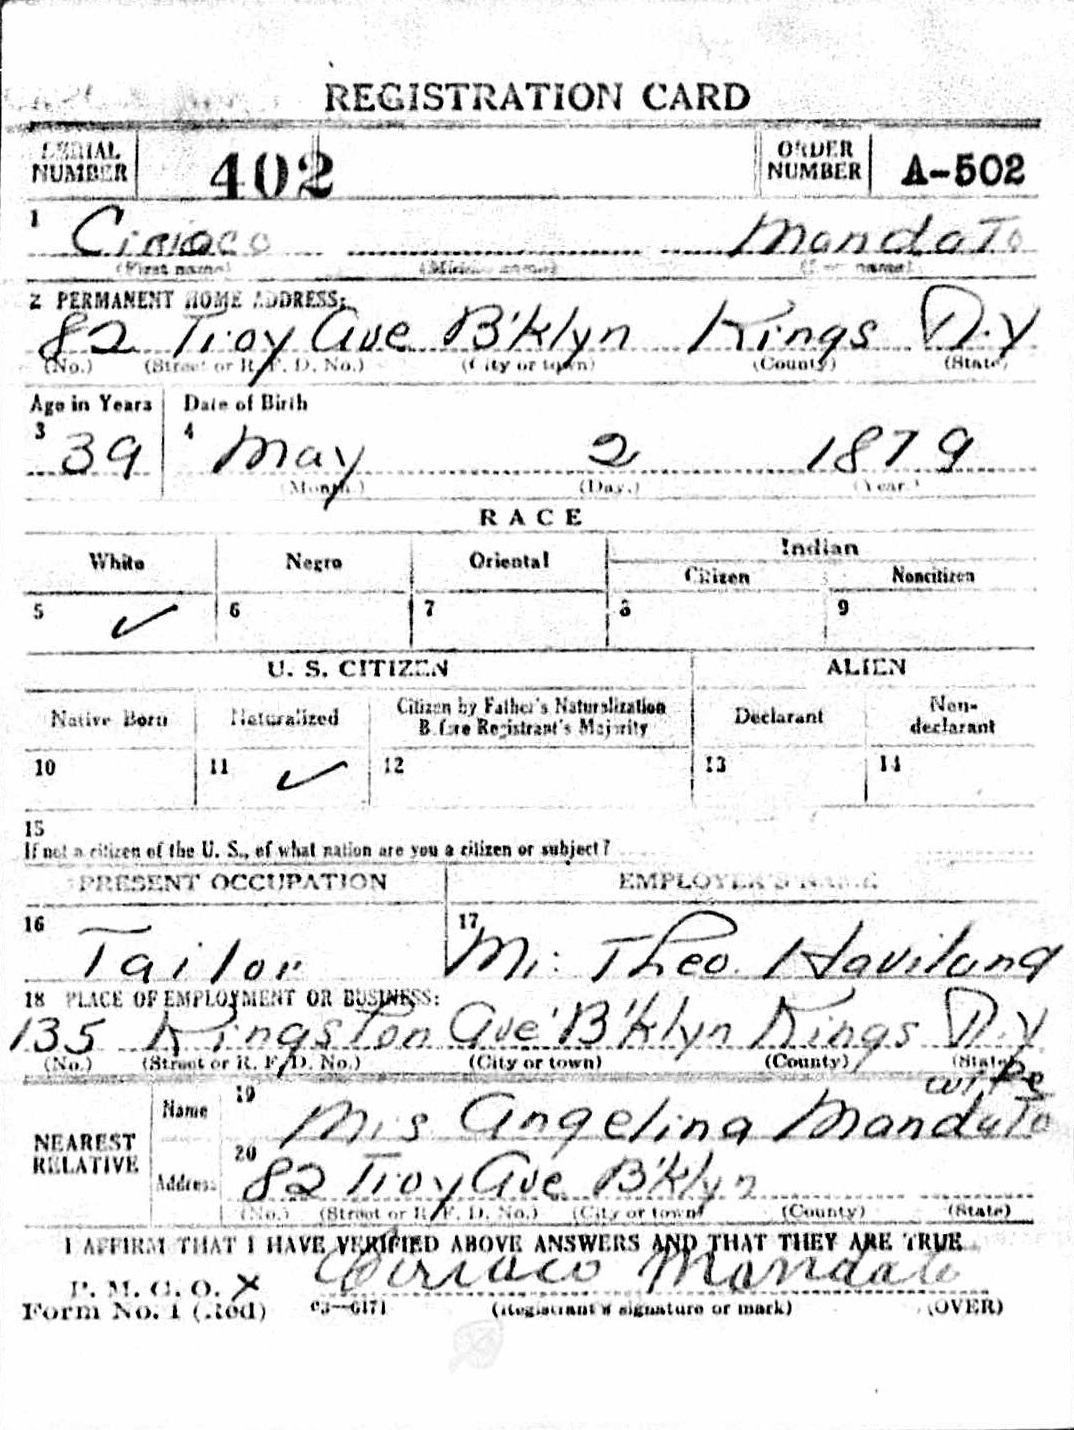 REGISTRATION CARD
SERIAL NUMBER 402 ORDER NUMBER A-502
1 Ciriaco Mandato
(First name) (Middle name) (Last name)
2 PERMANENT HOME ADDRESS:
82 Troy Ave B'klyn Kings N.Y
(No.) (Street or R. F. D. No.) (City or town) (County) (State)
Age in Years Date of Birth
3 39 4 May 2 1879
(Month.) (Day.) (Year.)
RACE
White Negro Oriental Indian
Citizen Noncitizen
5 ✓ 6 7 8 9
U. S. CITIZEN ALIEN
Native Born Naturalized Citizen by Father's Naturalization Before Registrant's Majority Declarant Non-declarant
10 11 ✓ 12 13 14
15
If not a citizen of the U. S., of what nation are you a citizen or subject?
PRESENT OCCUPATION EMPLOYER'S NAME
16 Tailor 17 Mr. Theo. Haviland
18 PLACE OF EMPLOYMENT OR BUSINESS:
135 Kingston Ave B'klyn Kings N.Y
(No.) (Street or R. F. D. No.) (City or town) (County) (State)
wife
NEAREST RELATIVE Name 19 Mrs Angelina Mandato
Address 20 82 Troy Ave B'klyn
(No.) (Street or R. F. D. No.) (City or town) (County) (State)
I AFFIRM THAT I HAVE VERIFIED ABOVE ANSWERS AND THAT THEY ARE TRUE
P. M. G. O. X Ciriaco Mandato
Form No. 1 (Red) 03—6171 (Registrant's signature or mark) (OVER)